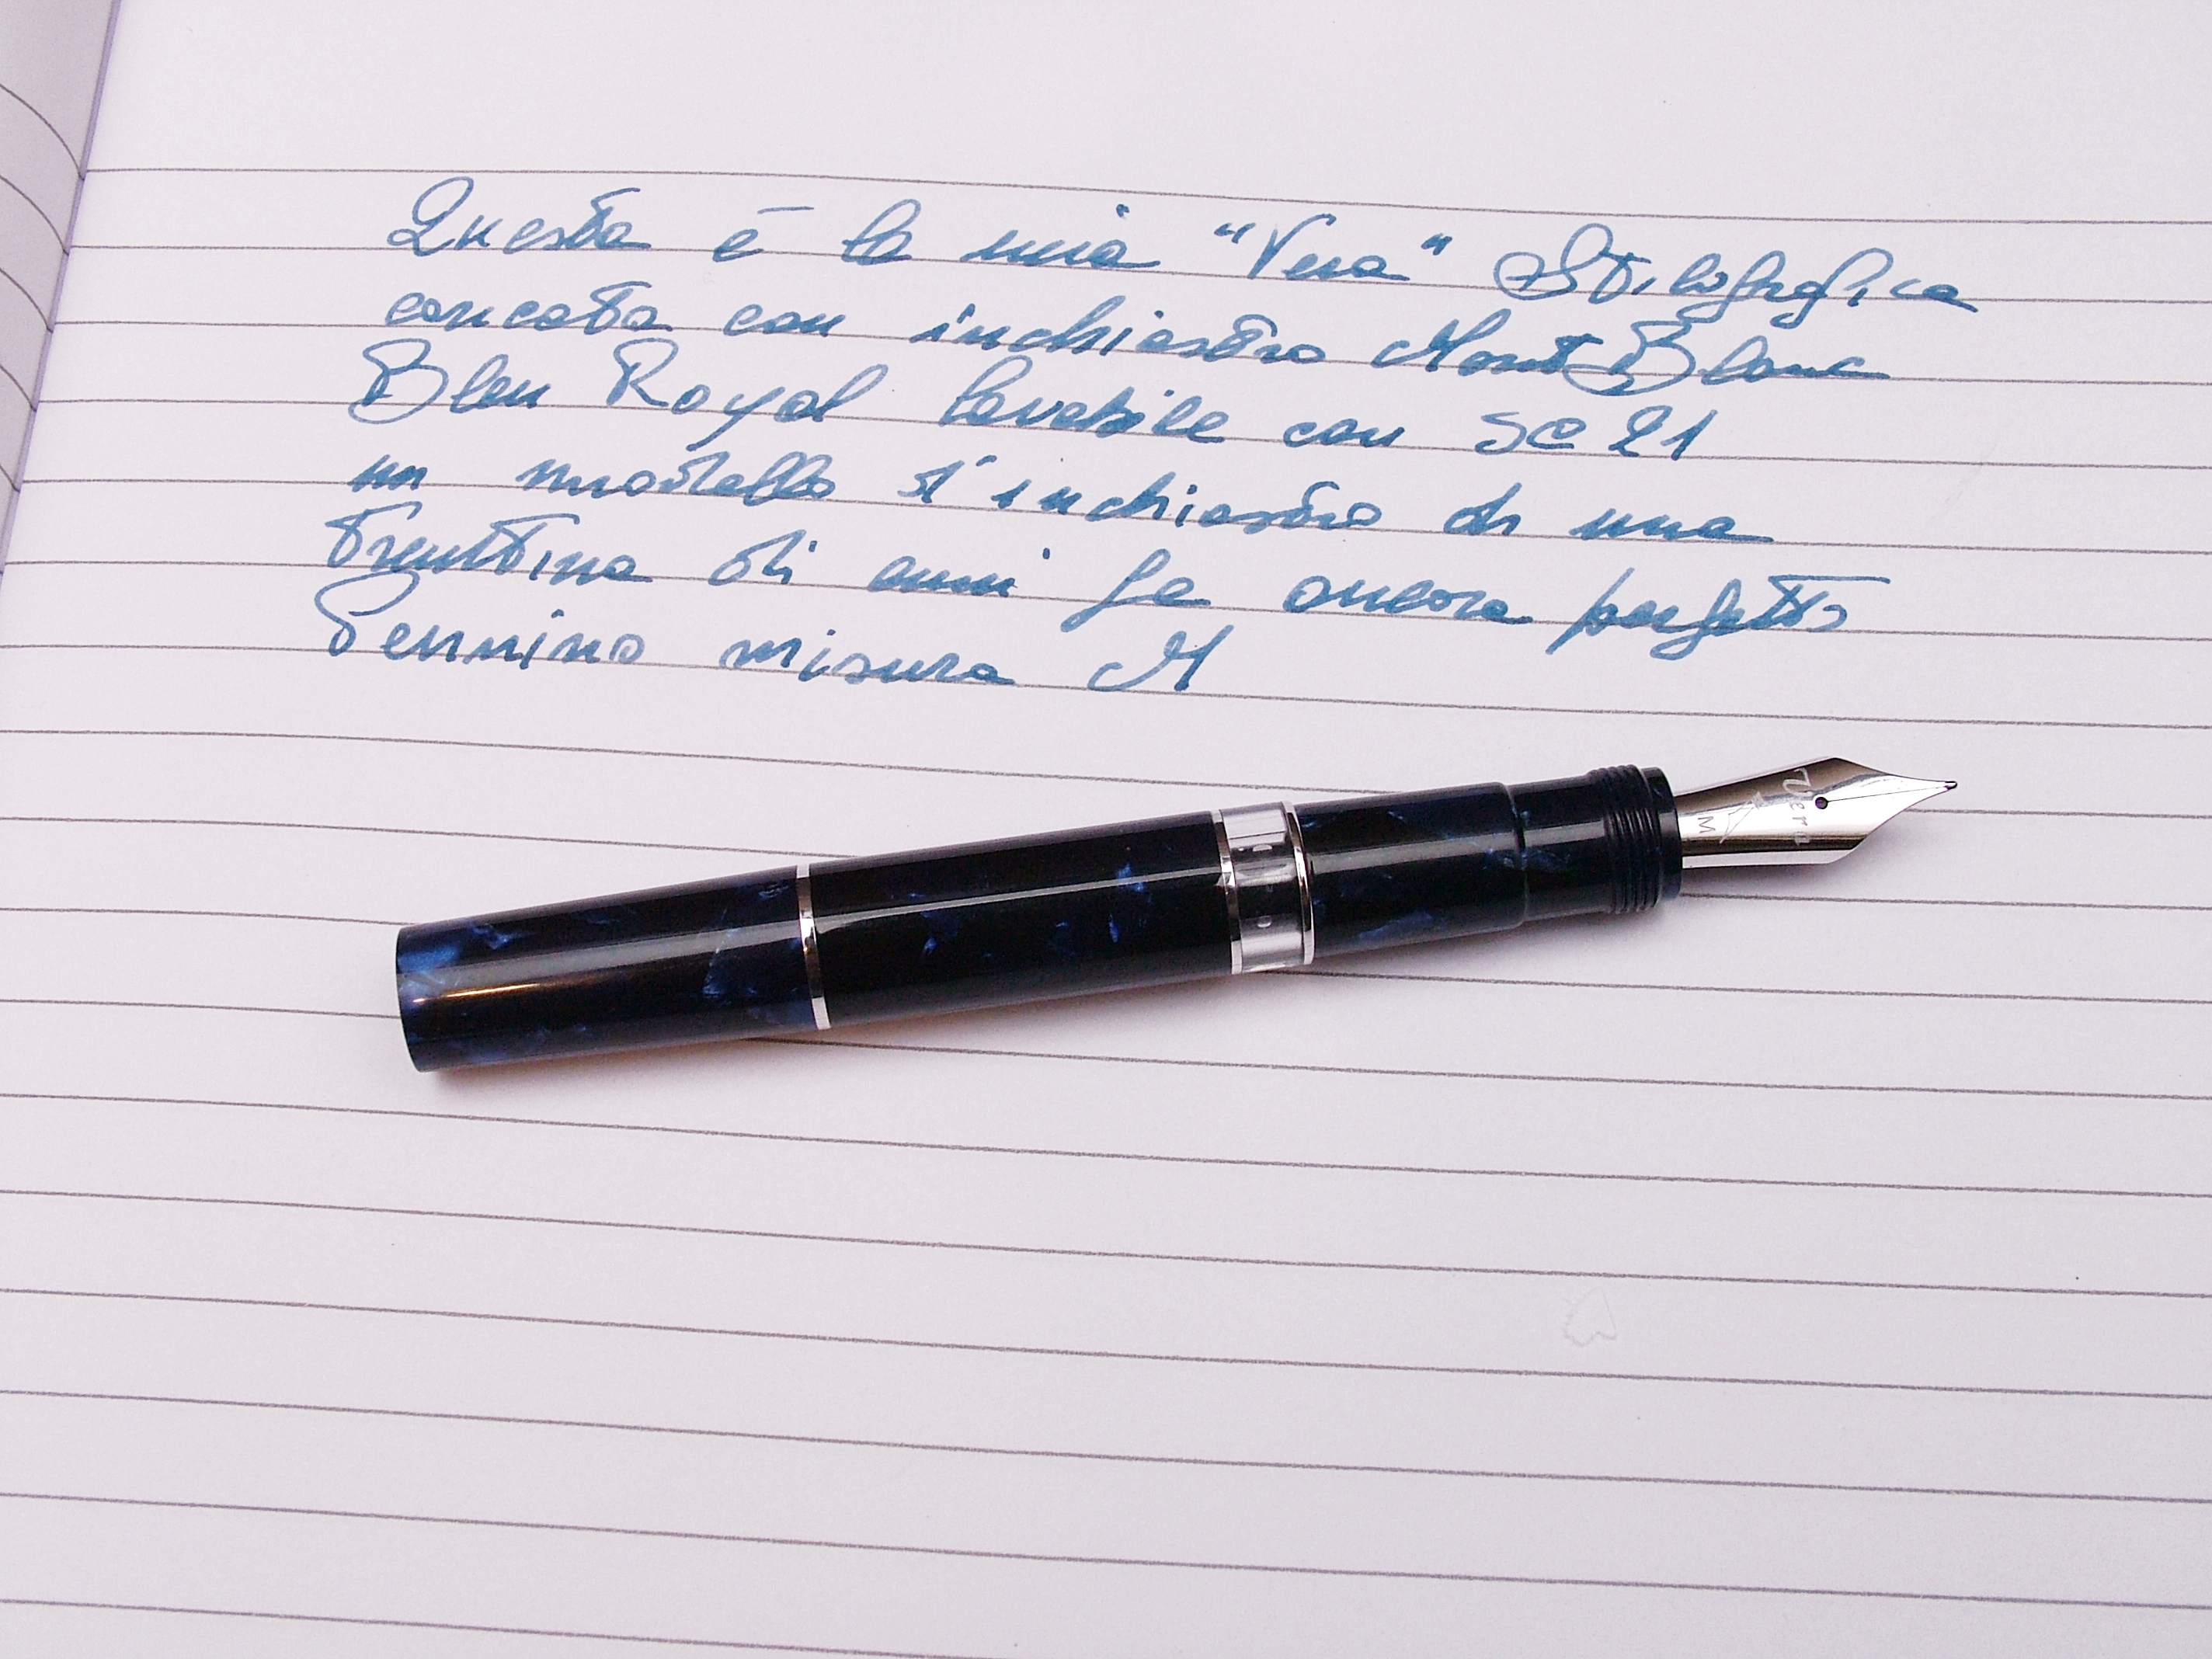 Questa è la mia "Vera" Stilografica
caricata con inchiostro Mont Blanc
Bleu Royal lavabile con SC 21
un modello d'inchiostro di una
trentina di anni fa ancora perfetto
Pennino misura M
Vera
M